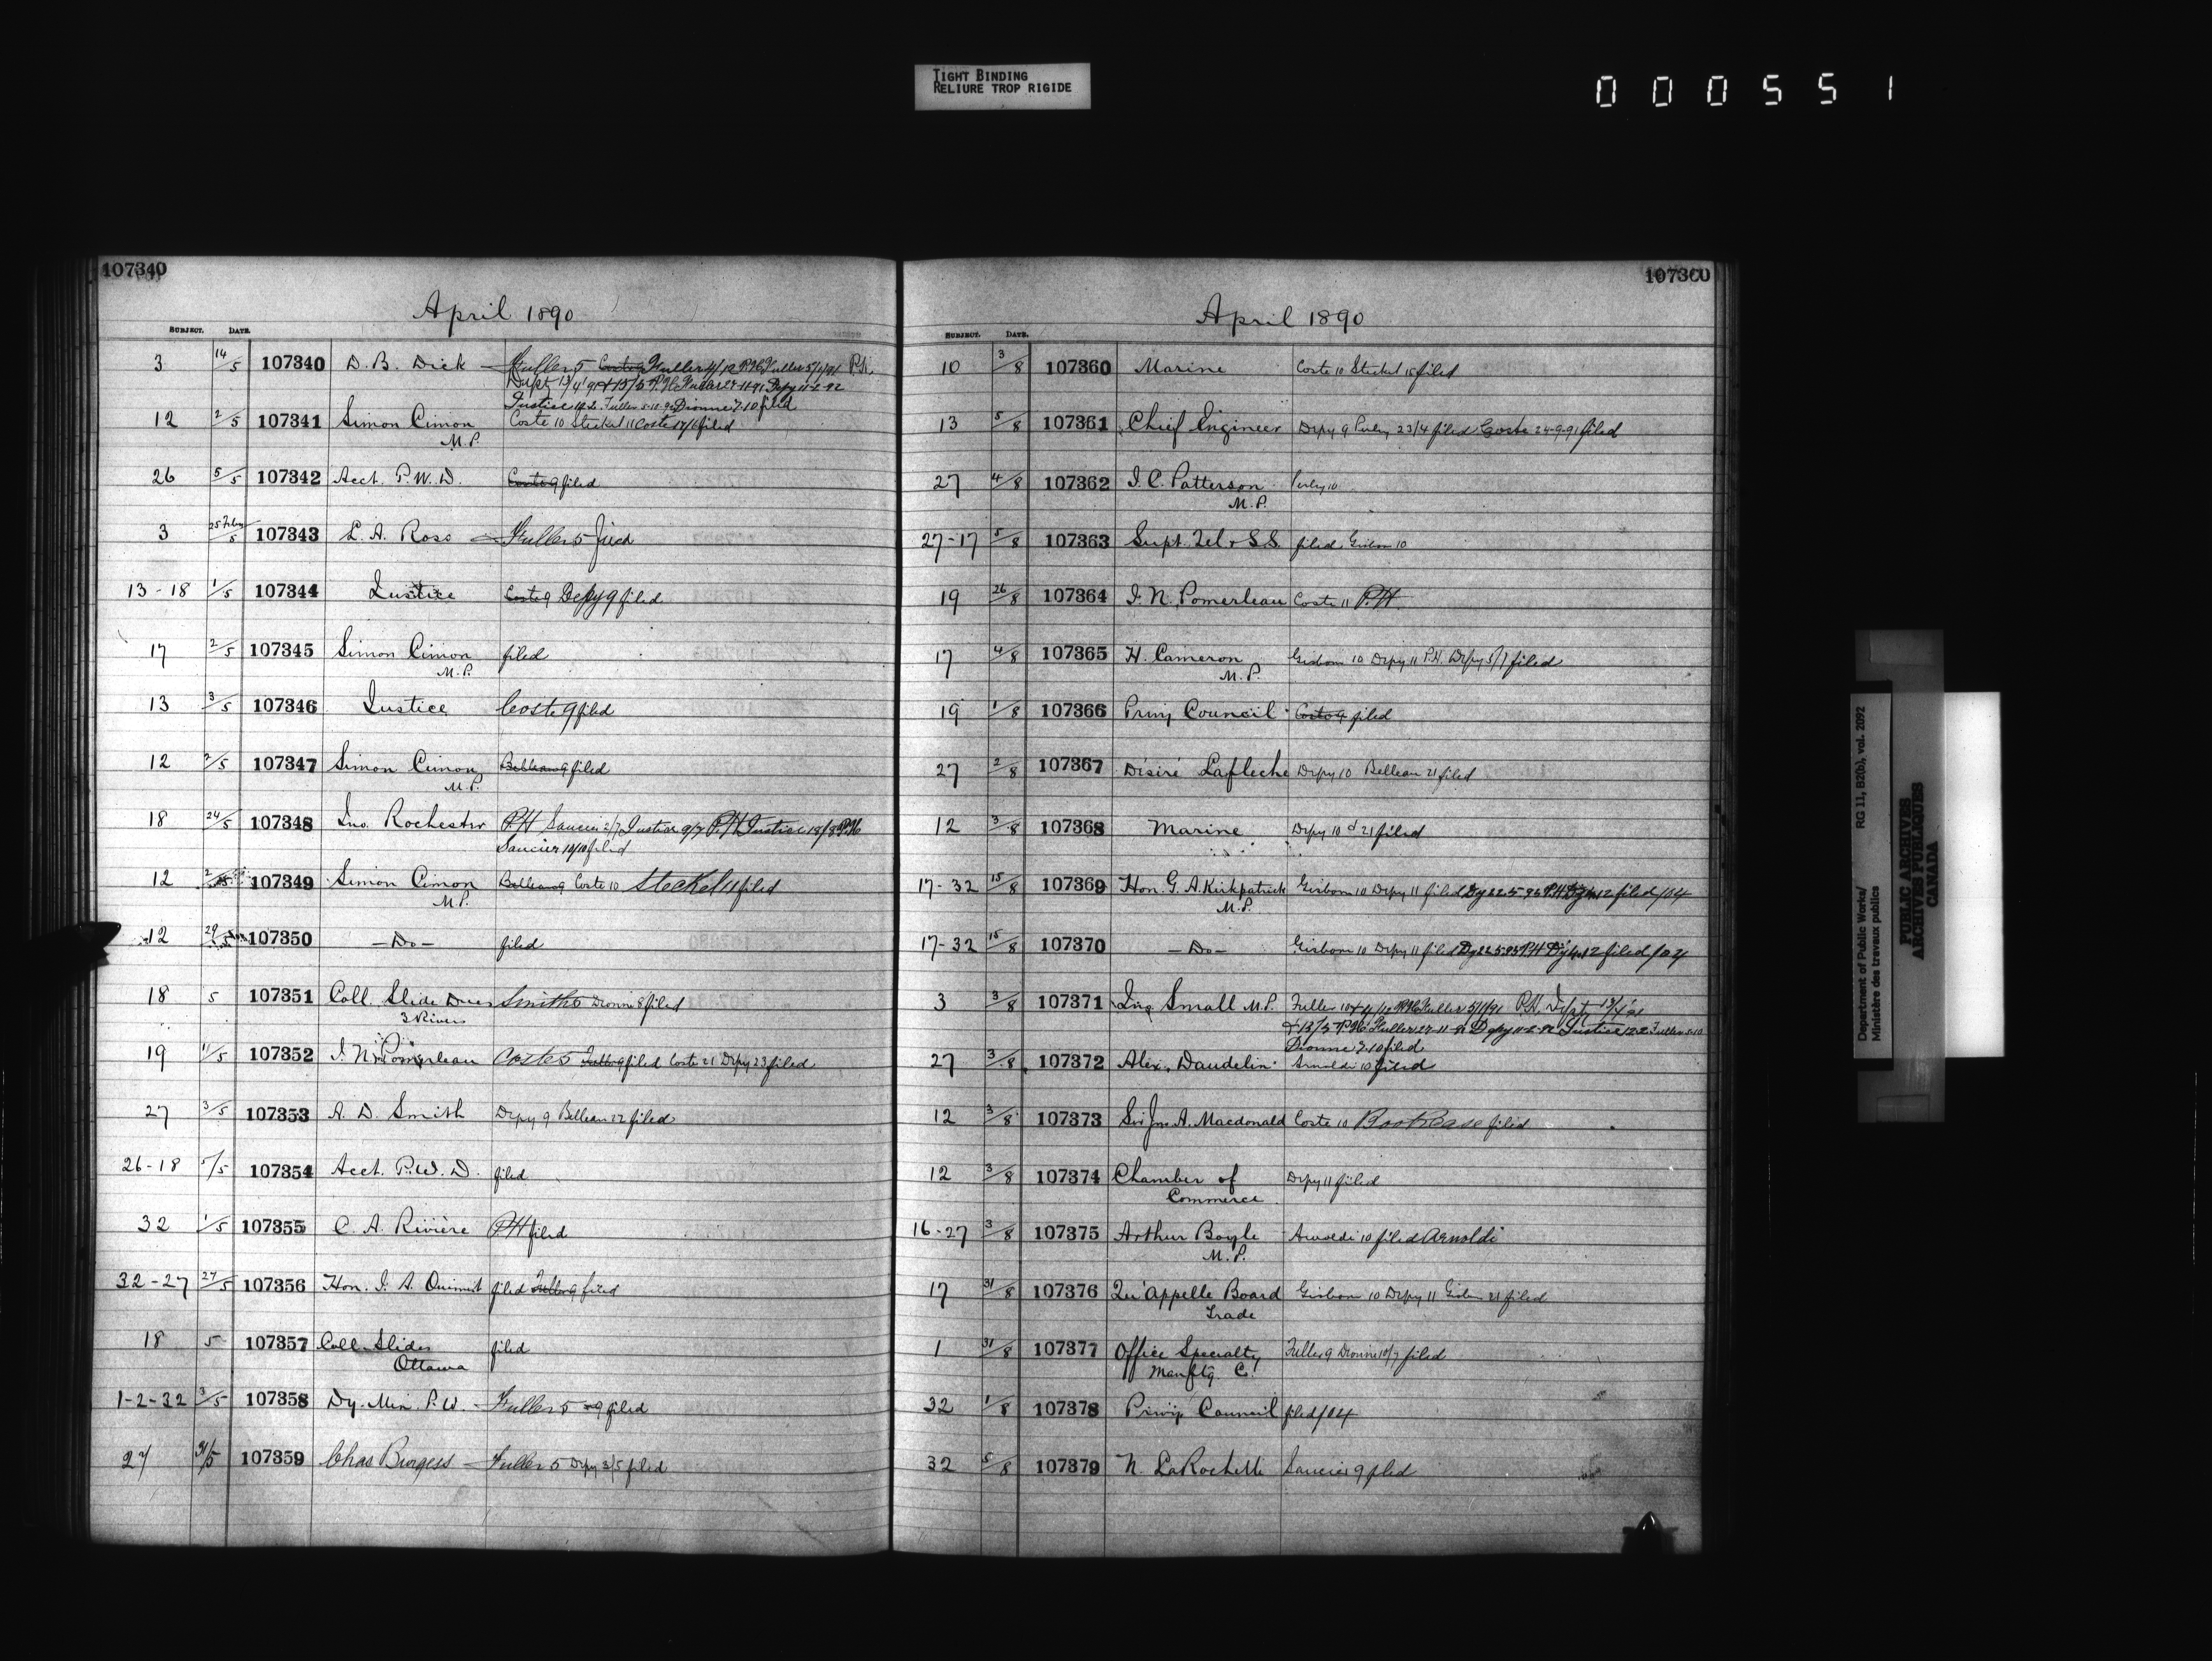 TIGHT BINDING
RELIURE TROP RIGIDE
000551
107340
April 1890
SUBJECT. DATE.
3 14/5 107340 D. B. Dick — Fuller 5 Coste 9 Fuller 4/12 P.H. Fuller 5/1/91 P.H.
Depty 13/4/91 & 13/5 P.H. Fuller 27-11-91 Depy 11-2-92
Justice 12.2 Fuller 5-10-92 Dionne 7.10 filed
12 2/5 107341 Simon Cimon Coste 10 Steckel 11 Coste 17/6 filed
M.P.
26 5/5 107342 Acct. P.W.D. Coste 9 filed
3 25 Feby/5 107343 L. A. Ross — Fuller 5 filed
13-18 1/5 107344 Justice Coste 9 Depy 9 filed
17 2/5 107345 Simon Cimon filed
M.P.
13 3/5 107346 Justice Coste 9 filed
12 2/5 107347 Simon Cimon Belleau 9 filed
M.P.
18 24/5 107348 Jno. Rochester P.H Saucier 2/7 Justice 9/7 P.H Justice 18/8 P.H
Saucier 10/10 filed
12 2/5 107349 Simon Cimon Belleau 9 Coste 10 Steckel 11 filed
M.P.
12 29/5 107350 — Do — filed
18 5 107351 Coll. Slide Dues Smith 5 Dionne 8 filed
3 Rivers
19 1/5 107352 J. N. Pomerleau Coste 5 Fuller 9 filed Coste 21 Depy 23 filed
27 3/5 107353 A. D. Smith Depy 9 Belleau 22 filed
26-18 5/5 107354 Acct. P.W.D. filed
32 1/5 107355 C. A. Rivière P.H filed
32-27 27/5 107356 Hon. J. A. Ouimet filed Fuller 9 filed
18 5 107357 Coll. Slides filed
Ottawa
1-2-32 3/5 107358 Dy. Min. P.W. — Fuller 5 9 filed
27 31/5 107359 Chas Burgess — Fuller 5 Depy 3/5 filed
107360
April 1890
SUBJECT. DATE.
10 3/8 107360 Marine Coste 10 Steckel 15 filed
13 5/8 107361 Chief Engineer Depy 9 Perley 23/4 filed Coste 24-9-91 filed
27 4/8 107362 J. C. Patterson Perley 10
M.P.
27-17 5/8 107363 Supt. Tel. & S.S. filed Gisbon 10
19 26/8 107364 J. N. Pomerleau Coste 11 P.H
17 4/8 107365 H. Cameron Gisborn 10 Depy 11 P.H. Depy 5/7 filed
M.P.
19 1/8 107366 Privy Council Coste 9 filed
27 2/8 107367 Désiré Lafleche Depy 10 Belleau 21 filed
12 3/8 107368 Marine Depy 10 d 21 filed
17-32 15/8 107369 Hon. G. A. Kirkpatrick Gisborn 10 Depy 11 filed Dy 22.5.93 P.H Dy 4.12 filed/04
M.P.
17-32 15/8 107370 — Do — Gisborn 10 Depy 11 filed Dy 22.5.93 P.H Dy 4.12 filed/04
3 3/8 107371 Jno Small M.P. Fuller 10 & 4/12 P.H. Fuller 5/1/91 P.H. Depty 13/4/91
& 13/5 P.H. Fuller 27-11-91 Depy 11-2-92 Justice 12.2 Fuller 5-10
Dionne 7.10 filed
27 3/8 107372 Alex. Daudelin Arnoldi 10 filed
12 3/8 107373 Sir Jno A. Macdonald Coste 10 BookCase filed
12 3/8 107374 Chamber of Depy 11 filed
Commerce
16-27 3/8 107375 Arthur Boyle Arnoldi 10 filed Arnoldi
M.P.
17 31/8 107376 Qu'appelle Board Gisborn 10 Depy 11 Gisbon 21 filed
Trade
1 31/8 107377 Office Specialty Fuller 9 Dionne 10/7 filed
Manftg Co.
32 1/8 107378 Privy Council filed/04
32 5/8 107379 N. LaRochelle Saucier 9 filed
Department of Public Works/
Ministère des travaux publics
RG 11, B2(b), vol. 2092
PUBLIC ARCHIVES
ARCHIVES PUBLIQUES
CANADA